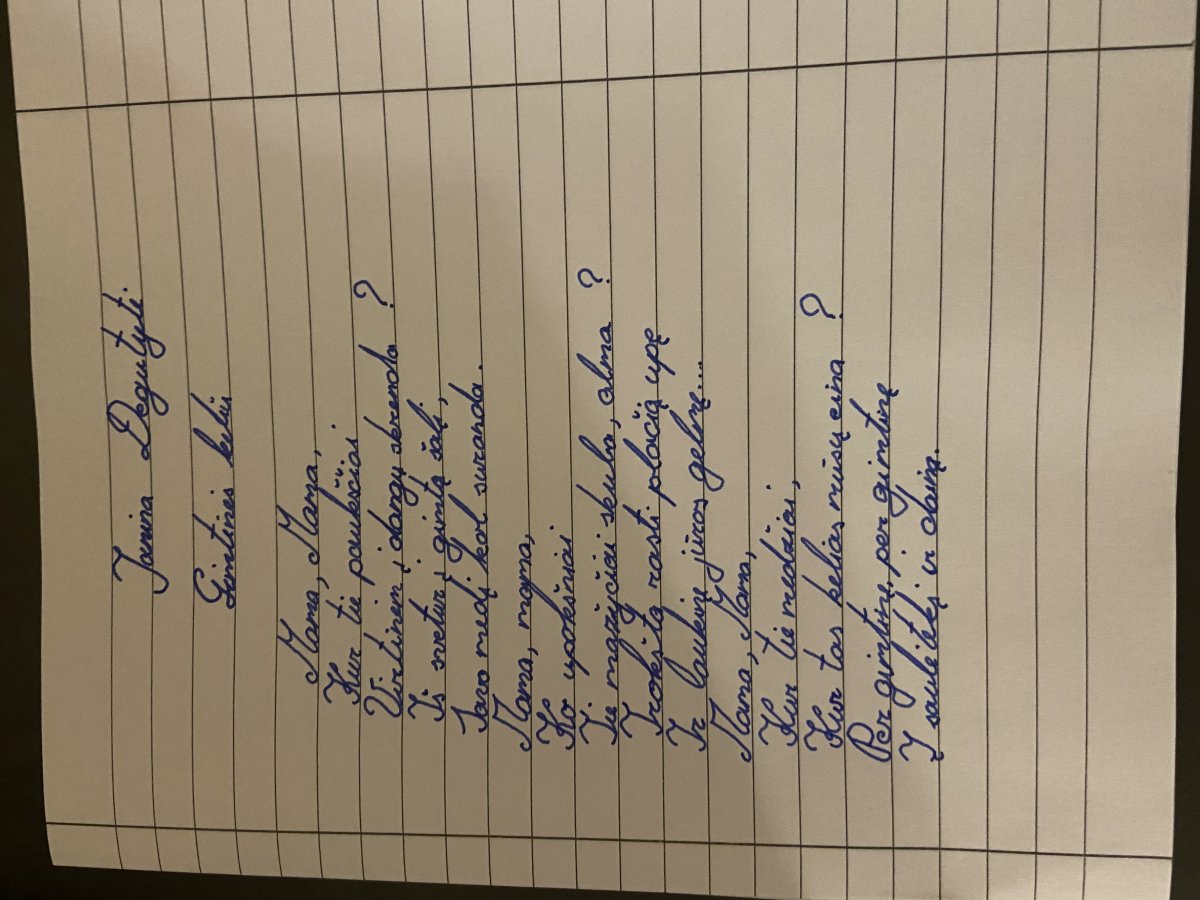 Janina Degutytė
Gimtinės keliu
Mama, Mama,
Kur tie paukščiai
Virtinėm į dangų skrenda ?
Iš svetur į gimtą šalį,
Savo medį kol suranda.
Mama, mama,
Ko upokšniai
Tie mažyčiai skuba, alma ?
Trokšta rasti plačią upę
Ir laukinę jūros gelmę...
Mama, Mama,
Kur tie medžiai,
Kur tas kelias mūsų eina ?
Per gimtinę, per gimtinę
Į saulėtekį ir dainą.